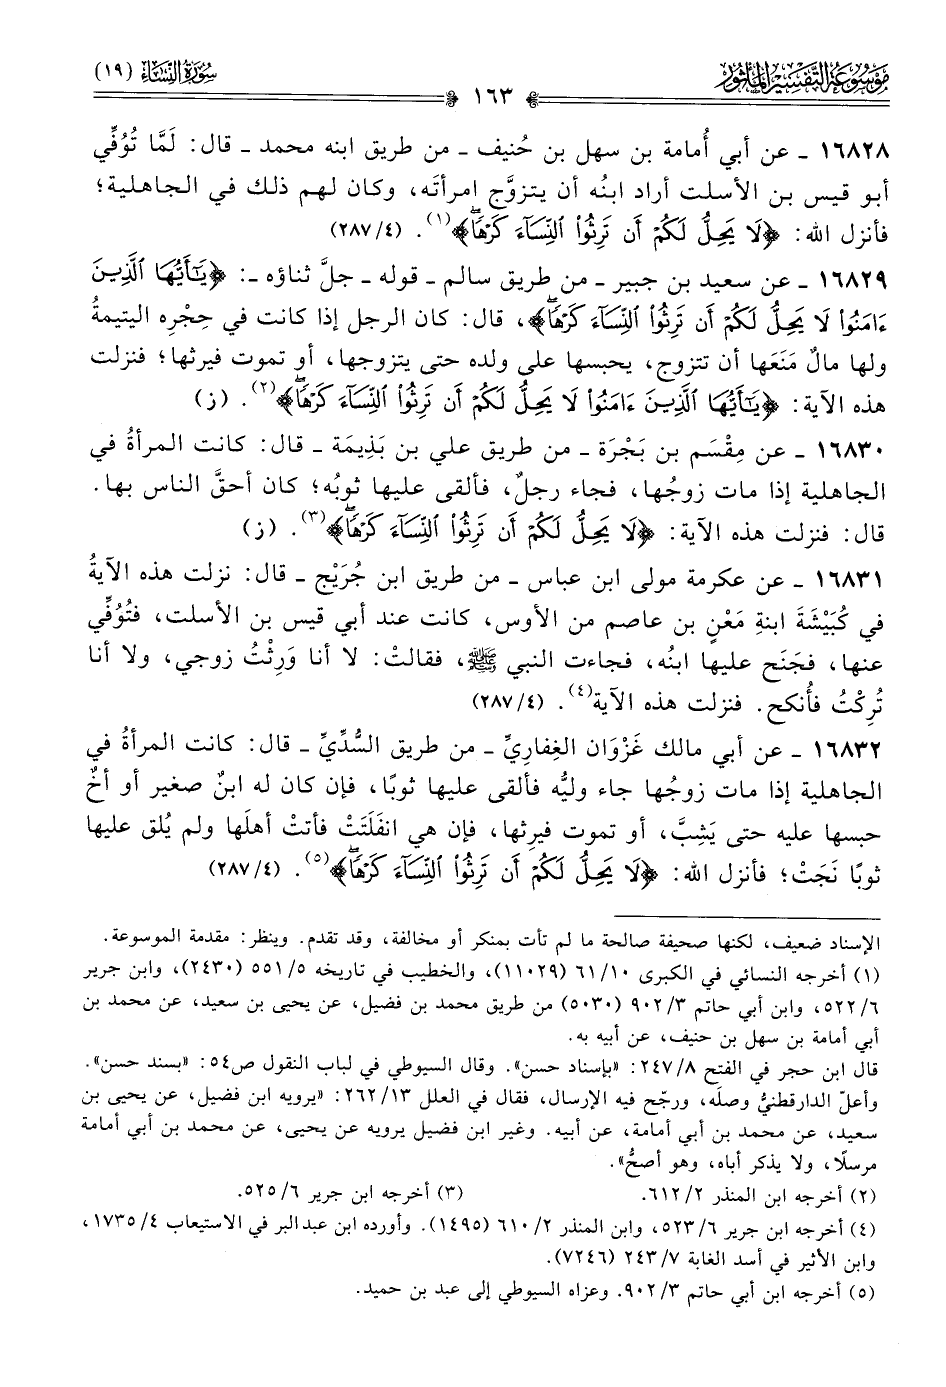 مَوْسُوعَة التَّفْسِير المَأْثُور
١٦٣
سُورَةُ النِّسَاء (١٩)
١٦٨٢٨ ـ عن أبي أُمامة بن سهل بن حُنيف ـ من طريق ابنه محمد ـ قال: لَمَّا تُوُفِّي
أبو قيس بن الأسلت أراد ابنُه أن يتزوَّج امرأتَه، وكان لهم ذلك في الجاهلية؛
فأنزل الله: ﴿لَا يَحِلُّ لَكُمْ أَن تَرِثُوا۟ ٱلنِّسَآءَ كَرْهًاۖ﴾(١). (٢٨٧/٤)
١٦٨٢٩ ـ عن سعيد بن جبير ـ من طريق سالم ـ قوله ـ جلَّ ثناؤه ـ: ﴿يَـٰٓأَيُّهَا ٱلَّذِينَ
ءَامَنُوا۟ لَا يَحِلُّ لَكُمْ أَن تَرِثُوا۟ ٱلنِّسَآءَ كَرْهًاۖ﴾، قال: كان الرجل إذا كانت في حِجْره اليتيمةُ
ولها مالٌ مَنَعَها أن تتزوج، يحبسها على ولده حتى يتزوجها، أو تموت فيرثها؛ فنزلت
هذه الآية: ﴿يَـٰٓأَيُّهَا ٱلَّذِينَ ءَامَنُوا۟ لَا يَحِلُّ لَكُمْ أَن تَرِثُوا۟ ٱلنِّسَآءَ كَرْهًاۖ﴾(٢). (ز)
١٦٨٣٠ ـ عن مِقْسَم بن بَجْرَة ـ من طريق علي بن بَذِيمَة ـ قال: كانت المرأةُ في
الجاهلية إذا مات زوجُها، فجاء رجلٌ، فألقى عليها ثوبُه؛ كان أحقَّ الناس بها.
قال: فنزلت هذه الآية: ﴿لَا يَحِلُّ لَكُمْ أَن تَرِثُوا۟ ٱلنِّسَآءَ كَرْهًاۖ﴾(٣). (ز)
١٦٨٣١ ـ عن عكرمة مولى ابن عباس ـ من طريق ابن جُرَيْج ـ قال: نزلت هذه الآيةُ
في كُبَيْشَةَ ابنةِ مَعْنٍ بن عاصم من الأوس، كانت عند أبي قيس بن الأسلت، فتُوُفِّي
عنها، فجَنَح عليها ابنُه، فجاءت النبي ﷺ، فقالتْ: لا أنا وَرِثْتُ زوجي، ولا أنا
تُرِكْتُ فأُنكح. فنزلت هذه الآية(٤). (٢٨٧/٤)
١٦٨٣٢ ـ عن أبي مالك غَزْوَان الغِفاريِّ ـ من طريق السُّدِّيِّ ـ قال: كانت المرأةُ في
الجاهلية إذا مات زوجُها جاء وليُّه فألقى عليها ثوبًا، فإن كان له ابنٌ صغير أو أخٌ
حبسها عليه حتى يَشِبَّ، أو تموت فيرثها، فإن هي انفَلَتَتْ فأتتْ أهلَها ولم يُلق عليها
ثوبًا نَجَتْ؛ فأنزل الله: ﴿لَا يَحِلُّ لَكُمْ أَن تَرِثُوا۟ ٱلنِّسَآءَ كَرْهًاۖ﴾(٥). (٢٨٧/٤)
الإسناد ضعيف، لكنها صحيفة صالحة ما لم تأت بمنكر أو مخالفة، وقد تقدم. وينظر: مقدمة الموسوعة.
(١) أخرجه النسائي في الكبرى ٦١/١٠ (١١٠٢٩)، والخطيب في تاريخه ٥٥١/٥ (٢٤٣٠)، وابن جرير
٥٢٢/٦، وابن أبي حاتم ٩٠٢/٣ (٥٠٣٠) من طريق محمد بن فضيل، عن يحيى بن سعيد، عن محمد بن
أبي أمامة بن سهل بن حنيف، عن أبيه به.
قال ابن حجر في الفتح ٢٤٧/٨: «بإسناد حسن». وقال السيوطي في لباب النقول ص٥٤: «بسند حسن».
وأعلّ الدارقطنيُّ وصلَه، ورجّح فيه الإرسال، فقال في العلل ٢٦٢/١٣: «يرويه ابن فضيل، عن يحيى بن
سعيد، عن محمد بن أبي أمامة، عن أبيه. وغير ابن فضيل يرويه عن يحيى، عن محمد بن أبي أمامة
مرسلًا، ولا يذكر أباه، وهو أصحُّ».
(٢) أخرجه ابن المنذر ٦١٢/٢. (٣) أخرجه ابن جرير ٥٢٥/٦.
(٤) أخرجه ابن جرير ٥٢٣/٦، وابن المنذر ٦١٠/٢ (١٤٩٥). وأورده ابن عبد البر في الاستيعاب ١٧٣٥/٤،
وابن الأثير في أسد الغابة ٢٤٣/٧ (٧٢٤٦).
(٥) أخرجه ابن أبي حاتم ٩٠٢/٣. وعزاه السيوطي إلى عبد بن حميد.